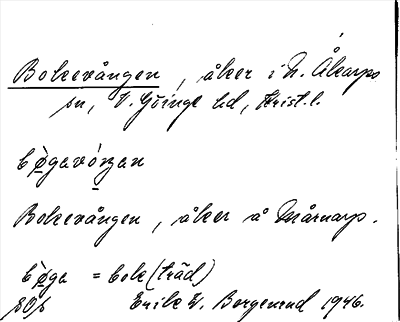 Bokevången, åker i N. Åkarps
sn, V. Göinge hd, Krist. l.
bøgavóŋan
Bokevången, åker å Mårnarp.
bøga = bok (träd)
Erik W. Bergenrud 1946.